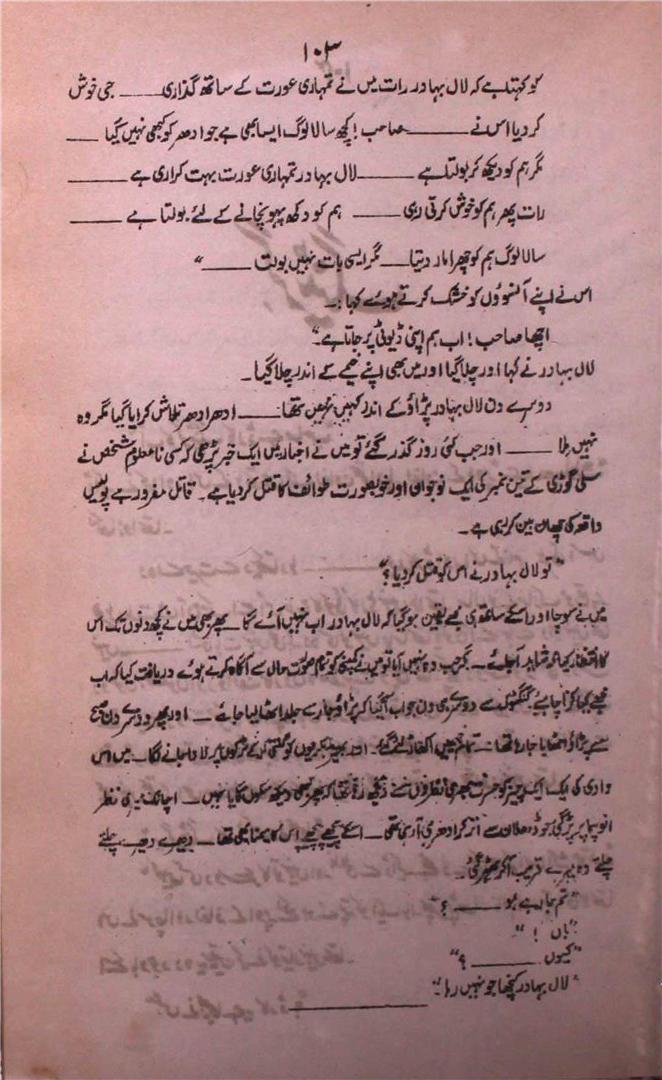 ۱۰۳
کو کہتا ہے کہ لال بہادر رات میں نے تمہاری عورت کے ساتھ گذاری ـــــ جی خوش
کر دیا اس نے ـــــ صاحب! کچھ سالا لوگ ایسا بھی ہے جو ادھر کو کبھی نہیں گیا ـــــ
مگر ہم کو دیکھ کر بولتا ہے ـــــ لال بہادر تمہاری عورت بہت کراری ہے ـــــ
رات بھر ہم کو خوش کرتی رہی ـــــ ہم کو دکھ پہونچانے کے لئے بولتا ہے ـــــ
سالا لوگ ہم کو چھرا مار دیتا ـــــ مگر ایسی بات نہیں بولتا ـــــ"
اس نے اپنے آنسوؤں کو خشک کرتے ہوئے کہا :۔
اچھا صاحب! اب ہم اپنی ڈیوٹی پر جاتا ہے۔"
لال بہادر نے کہا اور چلا گیا اور میں بھی اپنے خیمے کے اندر چلا گیا۔
دوسرے دن لال بہادر پڑاؤ کے اندر کہیں نہیں تھا ـــــ ادھر ادھر تلاش کرایا گیا مگر وہ
نہیں ملا ـــــ اور جب کئی روز گذر گئے تو میں نے اخبار میں ایک خبر پڑھی کہ کسی نامعلوم شخص نے
سلی گوڑی کے تین نمبر کی ایک نوجوان اور خوبصورت طوائف کا قتل کر دیا ہے۔ قاتل مفرور ہے پولیس
واقعہ کی چھان بین کر رہی ہے۔
"تو لال بہادر نے اس کو قتل کر دیا؟"
میں نے سوچا اور اسکے ساتھ ہی مجھے یقین ہو گیا کہ لال بہادر اب نہیں آئے گا۔ پھر بھی میں نے کچھ دنوں تک اس
کا انتظار کیا کہ شاید آ جائے۔ مگر جب وہ نہیں آیا تو میں نے کمپنی کو تمام صورت حال سے آگاہ کرتے ہوئے دریافت کیا کہ اب
مجھے کیا کرنا چاہیے۔ گنگٹوک سے دوسرے ہی دن جواب آ گیا کہ پڑاؤ وہاں سے جلد اٹھا لیا جائے۔ اور پھر دوسرے دن صبح
سے پڑاؤ اٹھایا جا رہا تھا۔ تمام خیمے اکھاڑ لئے گئے۔ اور بھیڑ بکریوں کو گنتی کر کے ٹرکوں پر لادا جانے لگا۔ میں اس
وادی کی ایک ایک چیز کو حسرت بھری نظروں سے دیکھ رہا تھا کہ پھر کبھی دیکھ سکوں گا یا نہیں۔ اچانک میری نظر
انوپما پر پڑ گئی جو ڈھلان سے اتر کر ادھر ہی آ رہی تھی۔ اسکے پیچھے پیچھے اس کا بیٹا بھی تھا۔ دھیرے دھیرے چلتے
چلتے وہ میرے قریب آ کر ٹھہر گئی۔
"تم جا رہے ہو ـــــ؟"
"ہاں!"
"کیوں ـــــ؟"
"لال بہادر کنچھا جو نہیں رہا۔"